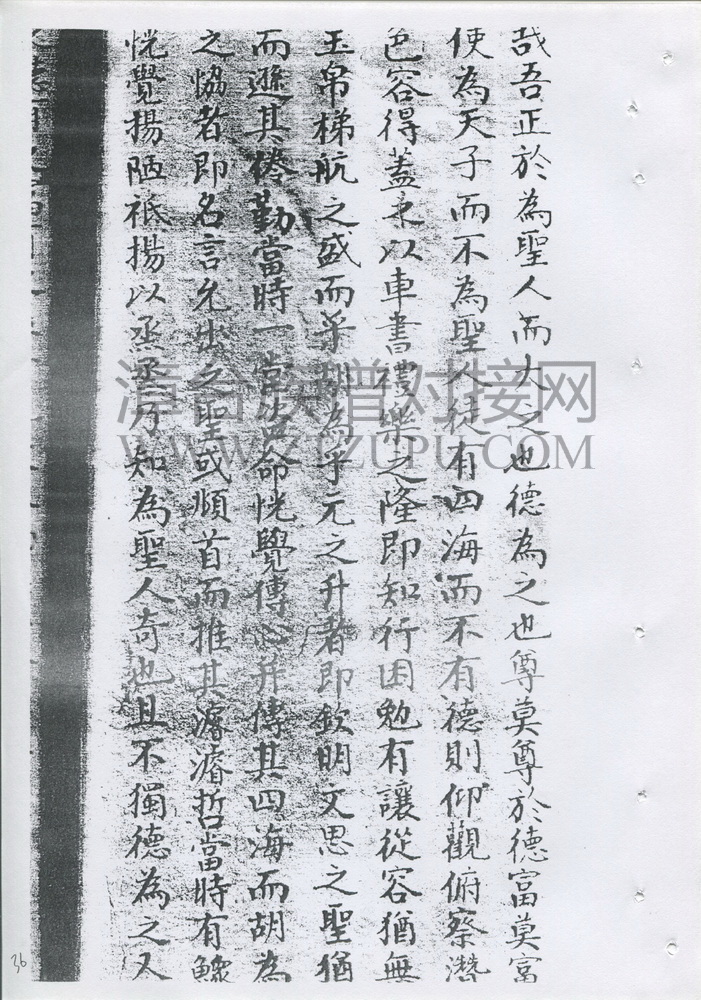 哉吾正於為聖人而大之也德為之也尊莫尊於德富莫富
使為天子而不為聖人徒有四海而不有德則仰觀俯察濳
色容得蓋求以車書禮樂之隆即知行困勉有讓從容猶無
玉帛梯航之盛而莘胡為乎元之升者即欽明文思之聖猶
而遜其勤當時一堂命恍覺傳心并傳其四海而胡為
之恊者即名言允出之聖或順首而推其濬哲當時有鰥
恍覺揚陋祇揚以烝烝乃知為聖人奇也且不獨德為之又
漳台族譜对接网
WWW.ZTZUPU.COM
36